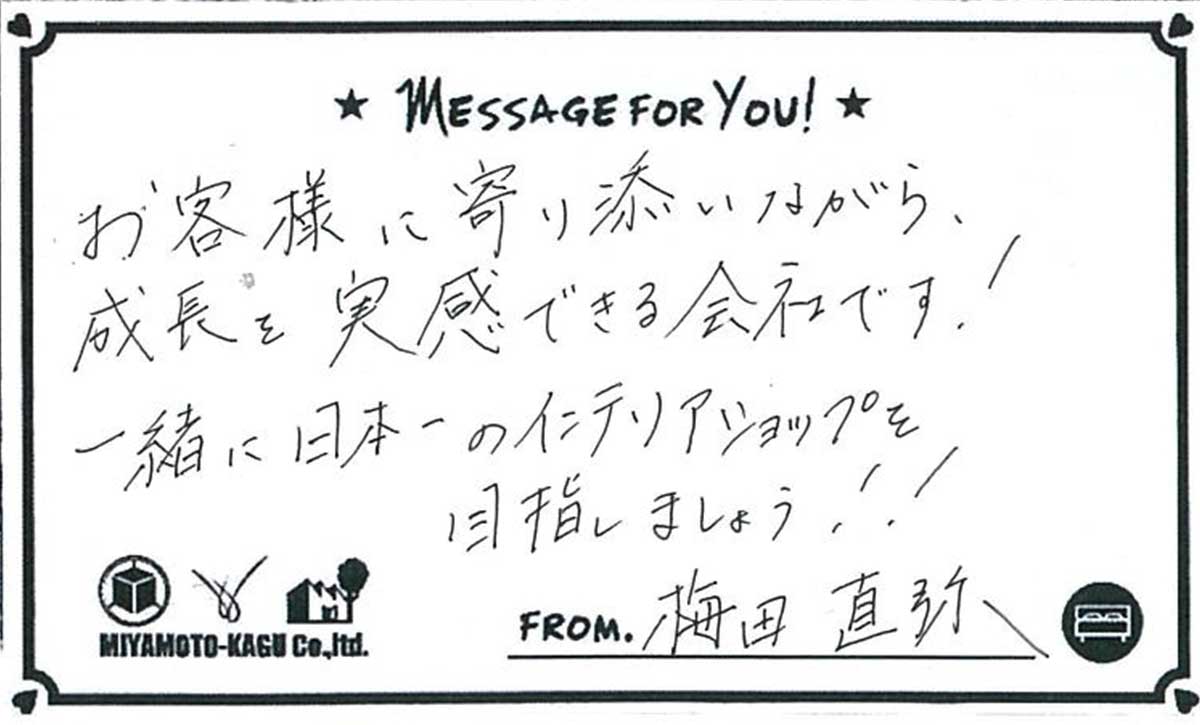 ★ MESSAGE FOR YOU! ★
お客様に寄り添いながら、
成長を実感できる会社です!
一緒に日本一のインテリアショップを
目指しましょう!!
MIYAMOTO-KAGU Co.,ltd.
FROM. 梅田 直弥